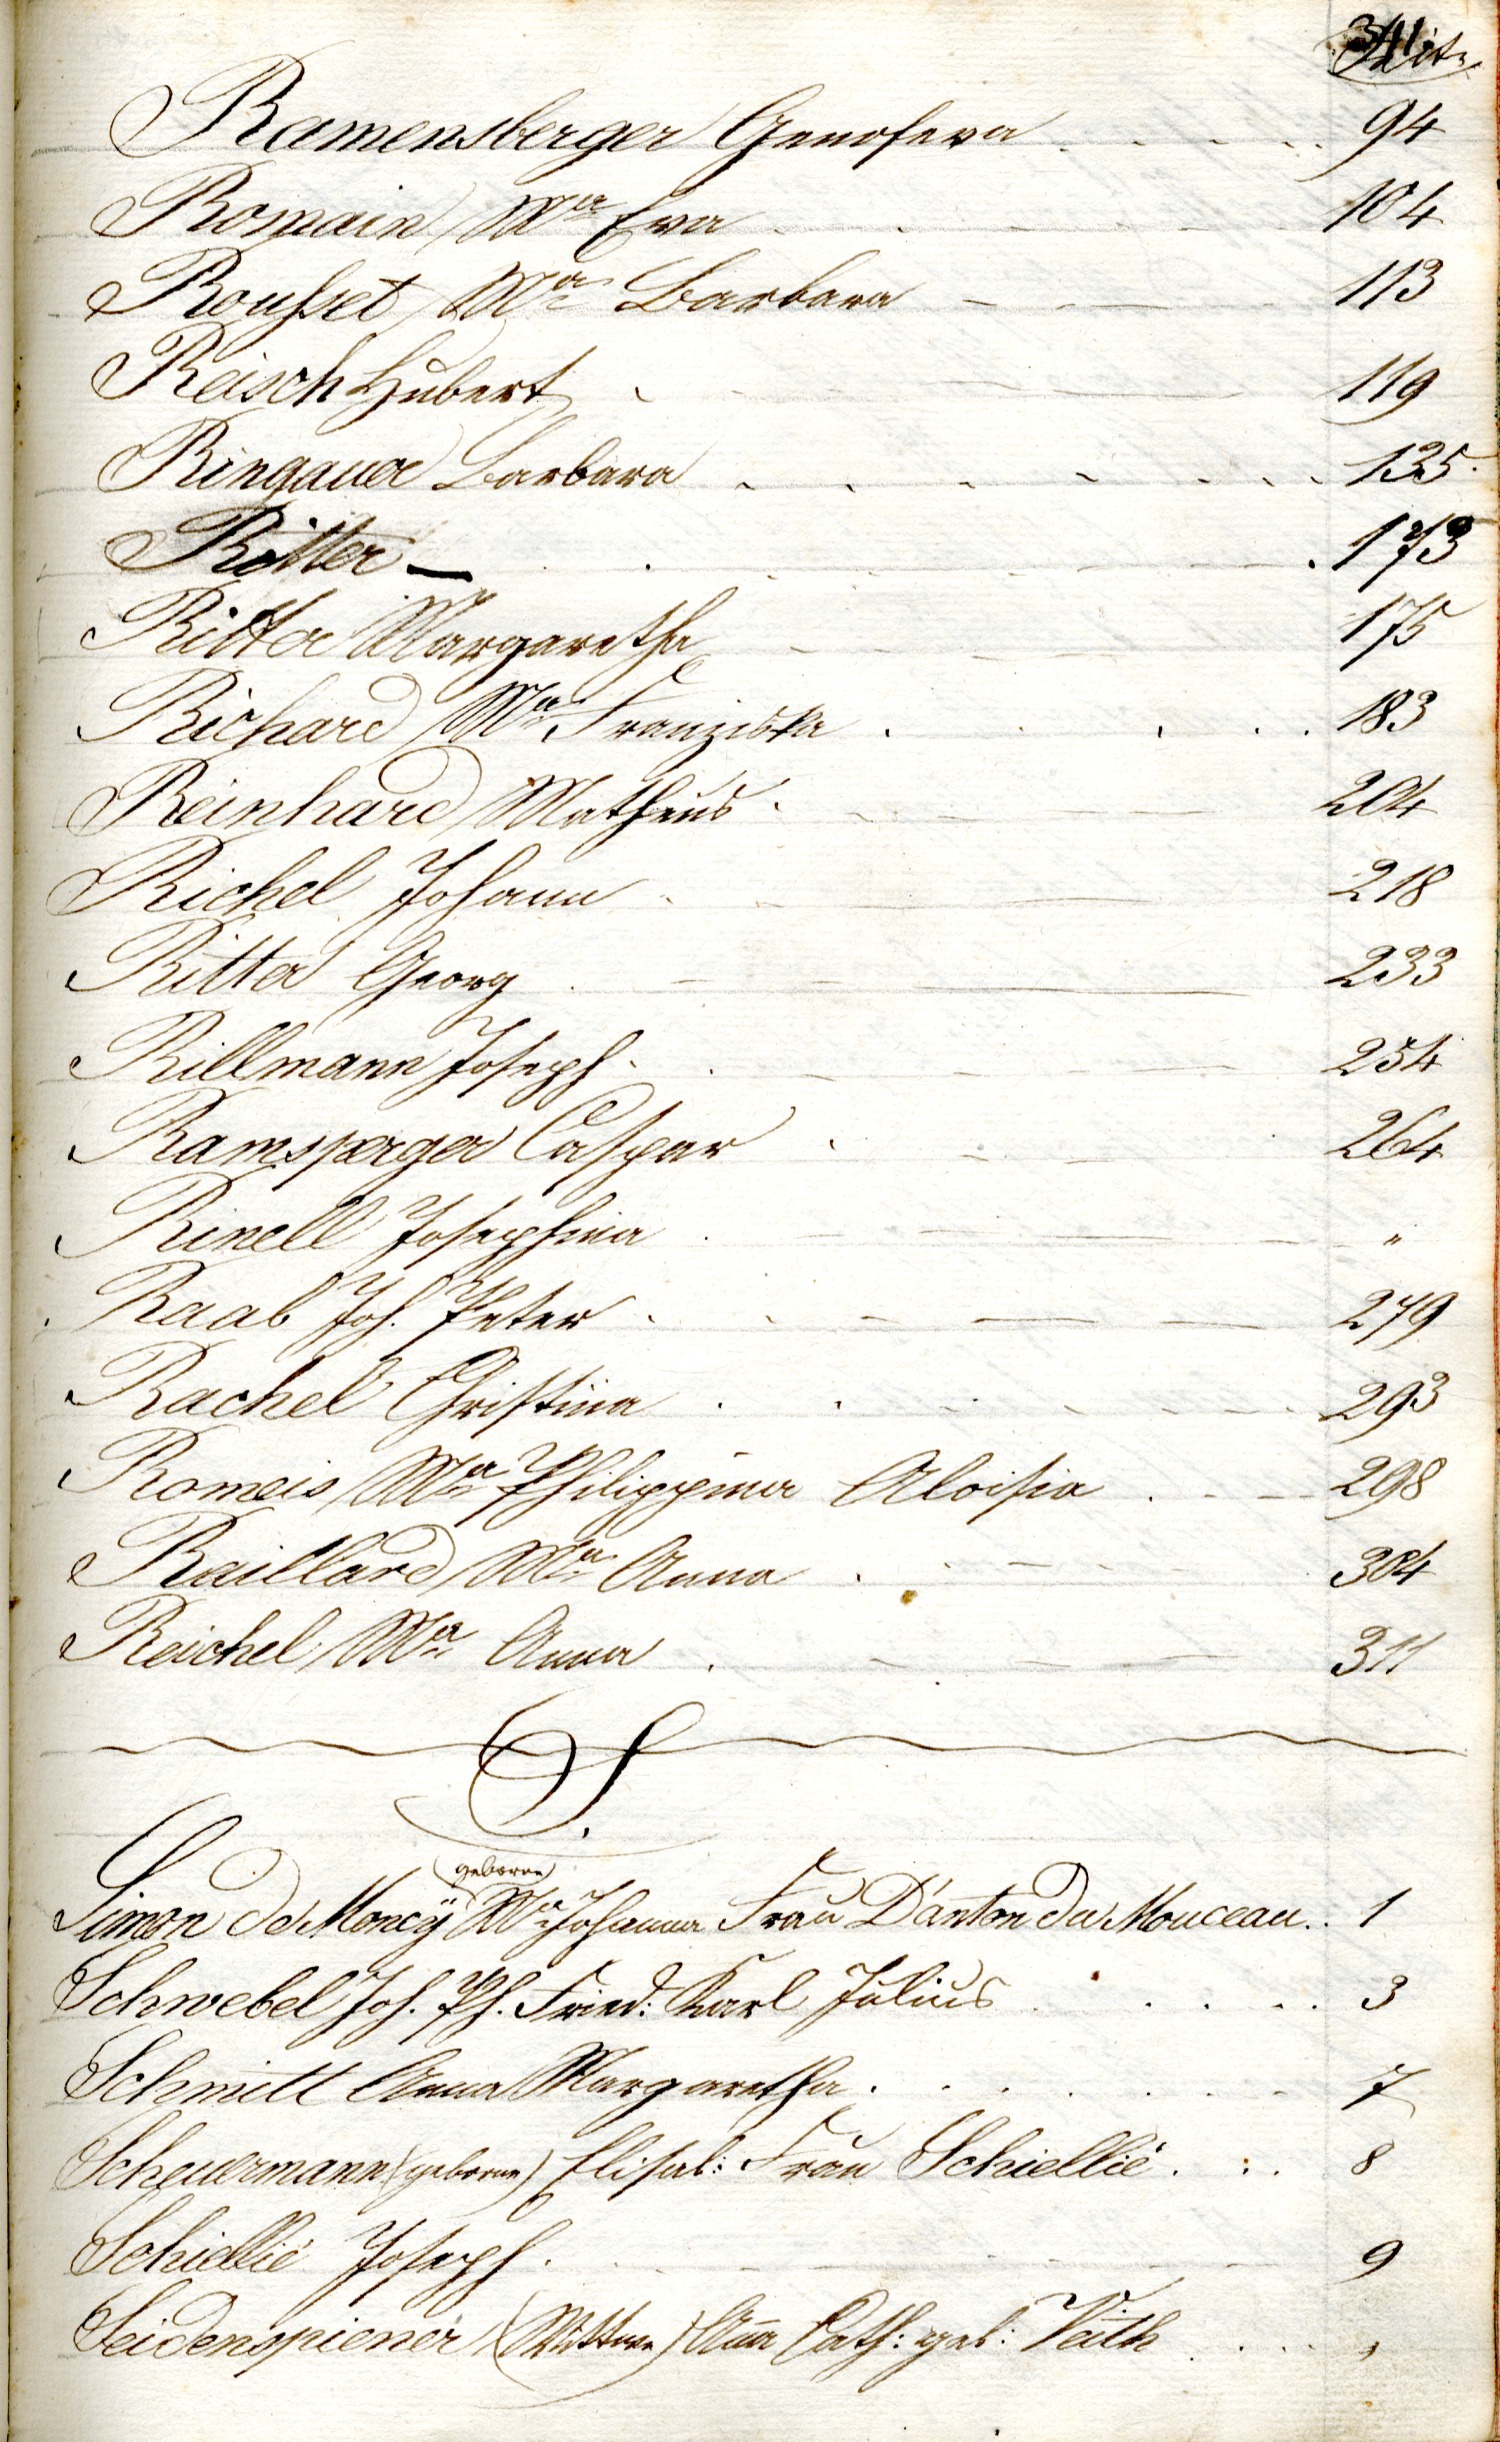 341.
Seite
Ramensberger Genofeva . . . . . 94
Romain Ma Eva . . . . 104
Rousset Ma Barbara - - - 113
Reisch Hubert - - - 119
Ringauer Barbara . . . . . . . 125.
Ritter — . . . . . 173
Ritter Margaretha . . . 175
Richard Ma Franziska . . . . . 183
Reinhard Mathäus . . . 204
Richel Johann . . . 218
Ritter Georg . - - 233
Rillmann Joseph . . . 254
Ramsperger Caspar . . . 264
Rinell Josephina . . . "
Raab Joh. Peter . . . 279
Rachel Christina . . . 293
Romeis Ma Philippina Aloisia . . . 298
Raillard Ma Anna . . . 304
Reichel Ma Anna . . . 311
S.
(geborne)
Simon de Moncÿ Ma Johanna Frau D'anton du Mouceau . . 1
Schwebel Joh. Ph. Fried: Karl Julius . . . . 3
Schmitt Anna Margaretha . . . . . 7
Scheuermann (geborne) Elisab: Frau Schiellié . . . 8
Schiellié Joseph . . . 9
Seidenspiener (Wittwe) Aña Cath: geb: Veith . . . "